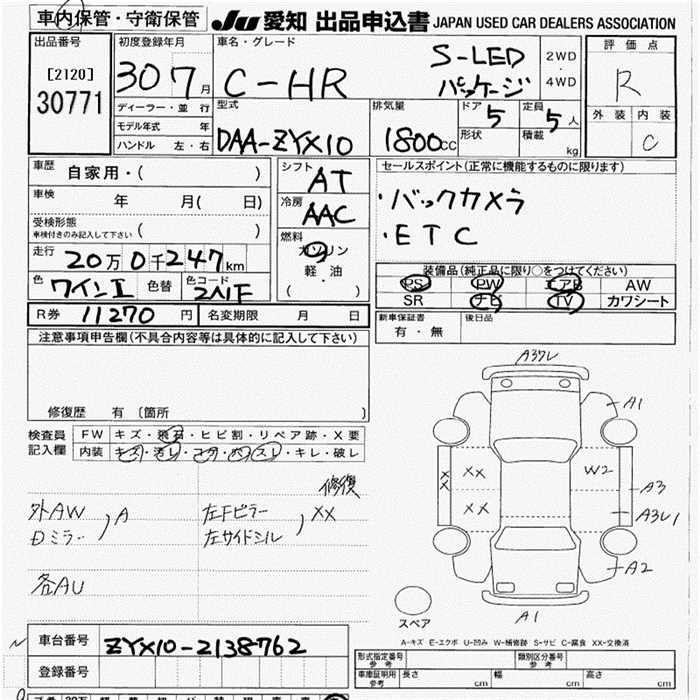 車内保管・守衛保管 JU 愛知 出品申込書 JAPAN USED CAR DEALERS ASSOCIATION
出品番号 初度登録年月 車名・グレード 評価点
[2120] 30 7月 C-HR S-LED パッケージ 2WD ・ 4WD R
30771 ディーラー・並行 型式 排気量 ドア 5 定員 5人 外装 内装
モデル年式 年 DAA-ZYX10 1800cc 形状 積載 kg C
ハンドル 左・右
車歴 自家用・( ) シフト AT セールスポイント(正常に機能するものに限ります)
車検 年 月( 日) 冷房 AAC ・バックカメラ
受検形態 ( )
車検付きのみ記入して下さい
燃料 ガソリン ・ETC
走行 20万0千247km 軽・油
色 ワインI 色替 色コード ( ・ ) 装備品(純正品に限り○をつけてください)
PS PW エアB AW
R券 11270円 名変期限 月 日 SR ナビ TV カワシート
注意事項申告欄(不具合内容等は具体的に記入して下さい) 新車保証書 有・無 後日品
修復歴 有 〔箇所 〕
検査員 FW キズ・飛石・ヒビ割・リペア跡・X要
記入欄 内装 キズ・汚レ・コゲ・穴・スレ・キレ・破レ
修復
外AW 左Fピラー
Dミラー , A 左サイドシル , XX
各AU
A3ワレ
A1
XX
XX W2
XX A3
A3ワレ1
A2
A1
スペア
A-キズ E-エクボ U-凹み W-補修跡 S-サビ C-腐食 XX-交換済
車台番号 ZYX10-2138762 形式指定番号 参考 類別区分番号 参考
登録番号 車庫証明用 参考 長さ cm 幅 cm 高さ cm